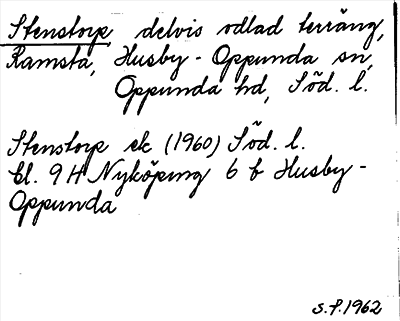 Stenstorp delvis odlad terräng,
Ramsta, Husby-Oppunda sn,
Oppunda hd, Söd. l.
Stenstorp ek (1960) Söd. l.
bl. 9 H Nyköping 6 b Husby-
Oppunda
S.f. 1962